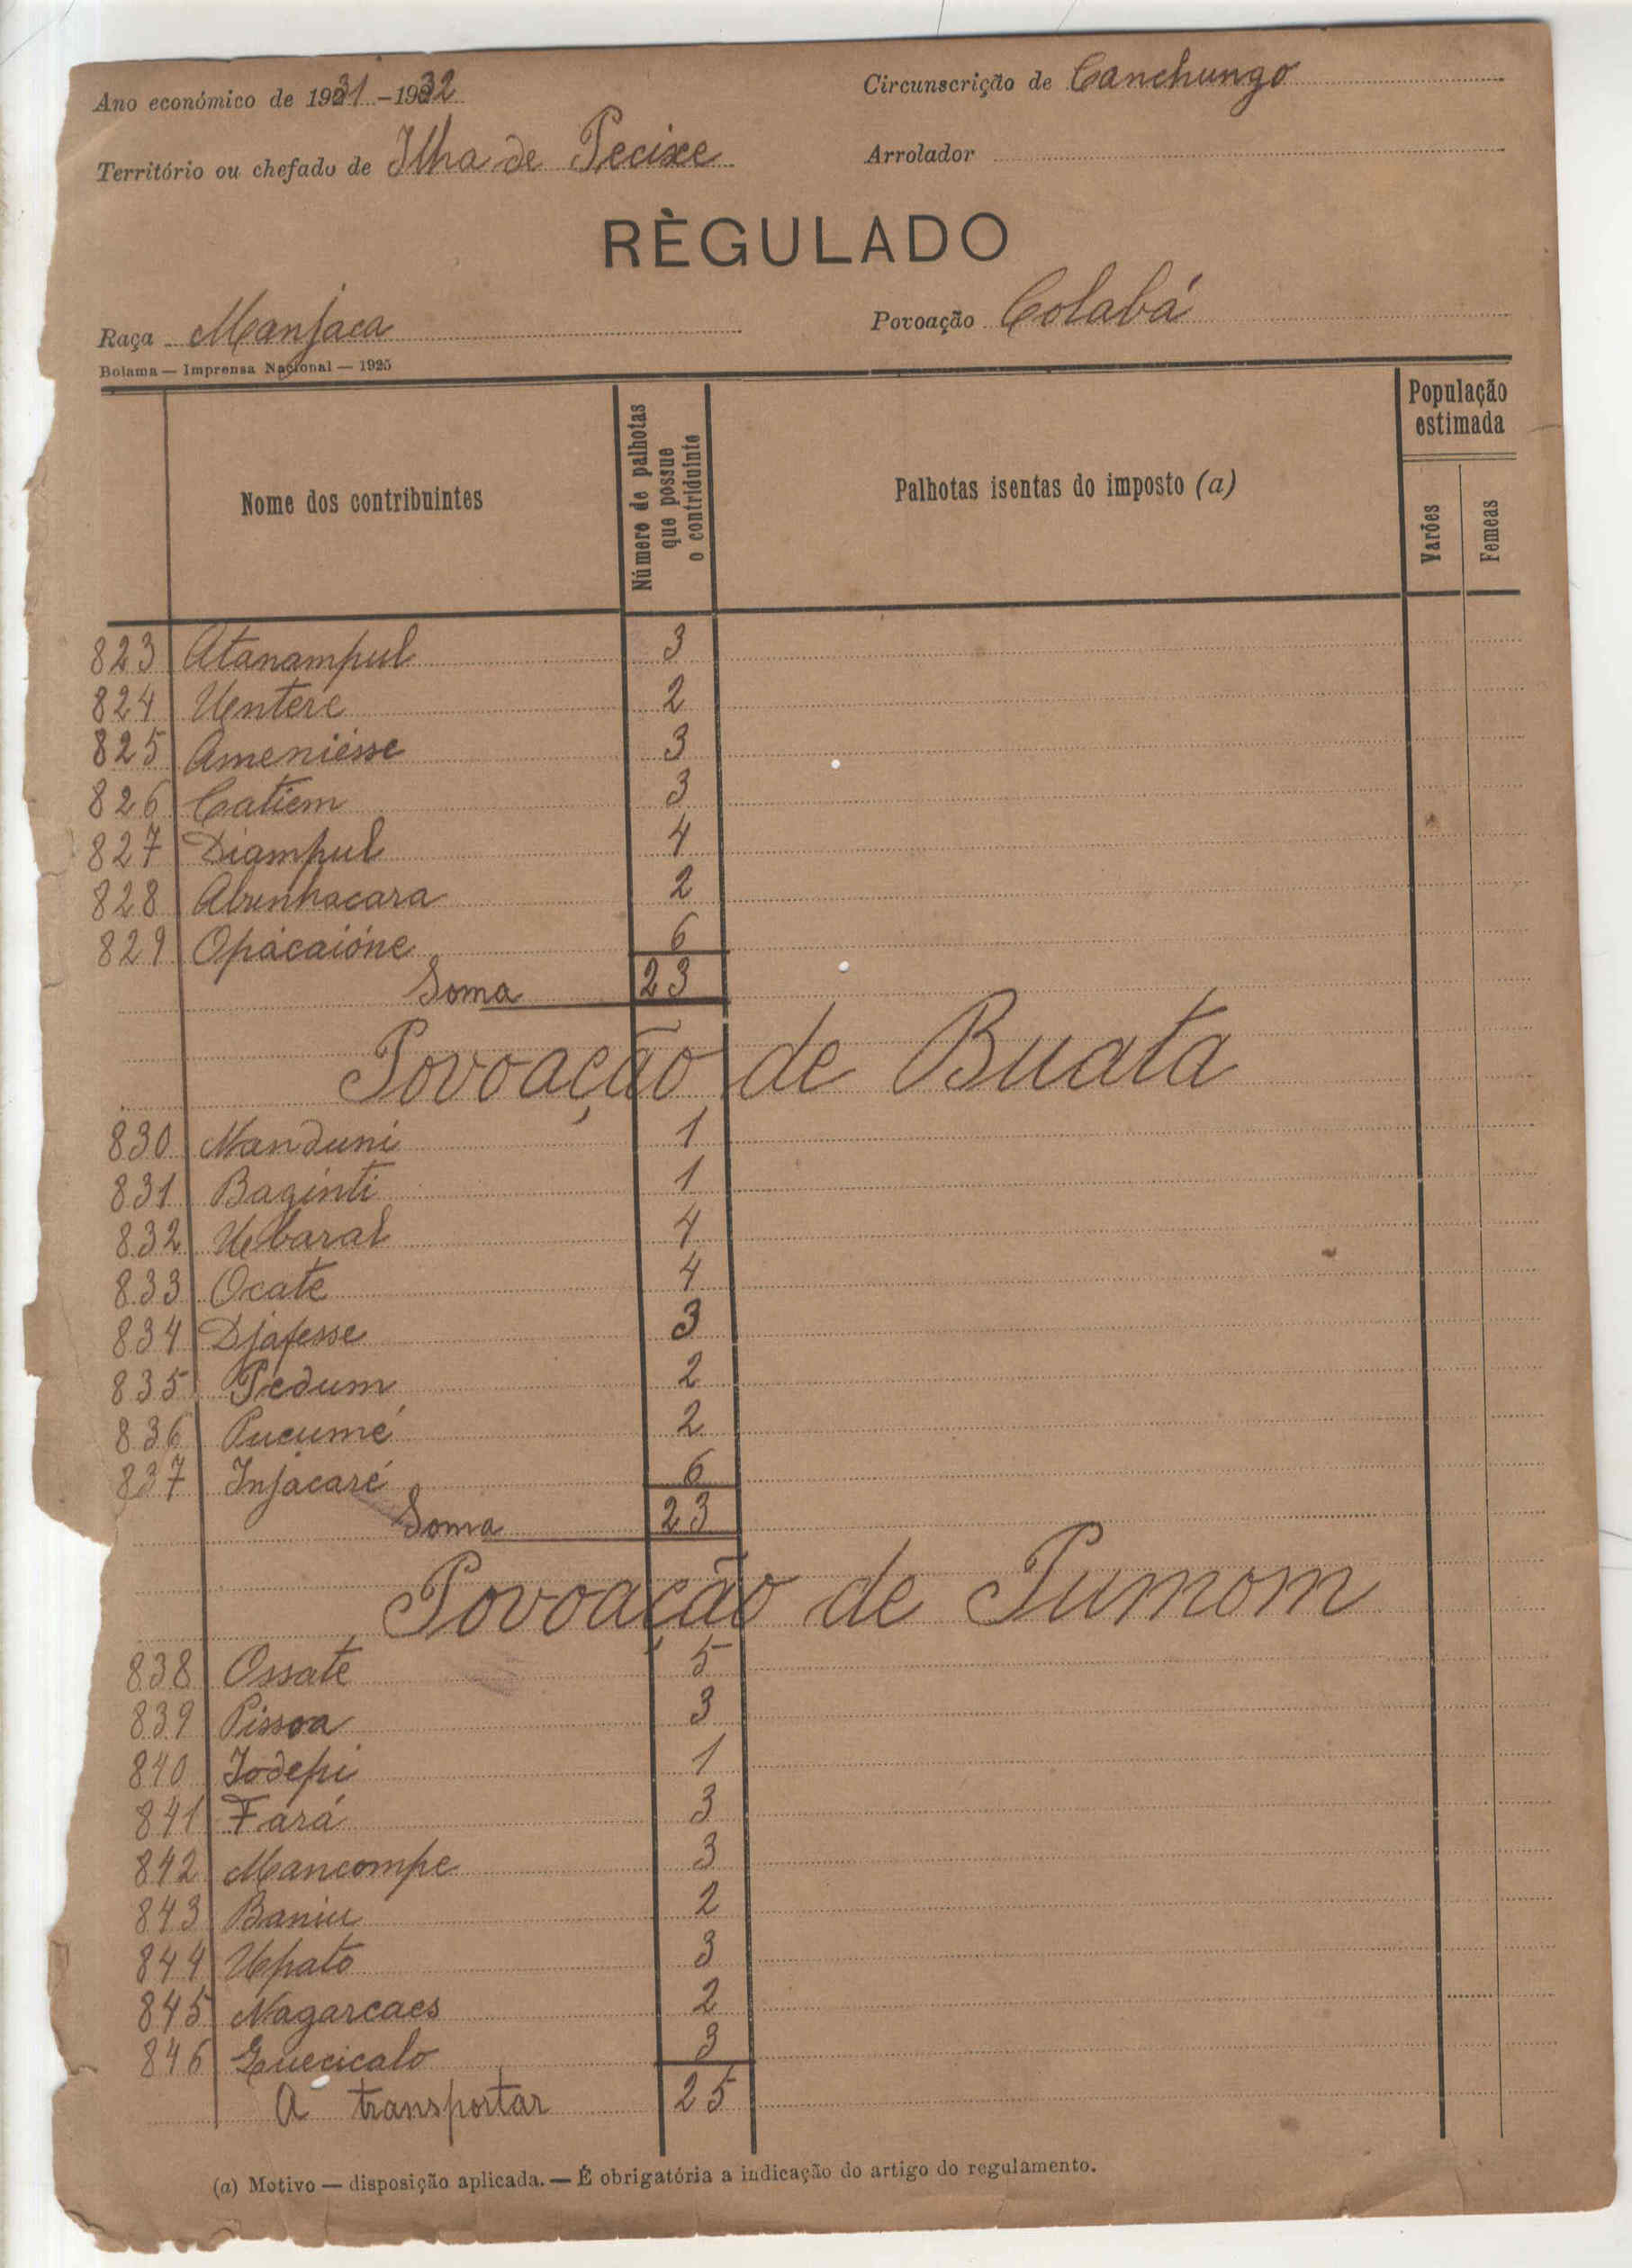 Ano económico de 1931-1932
Circunscrição de Canchungo
Território ou chefado de Ilha de Pecixe
Arrolador
RÈGULADO
Raça Manjaca
Povoação Colabá
Bolama — Imprensa Nacional — 1925
Nome dos contribuintes
Número de palhotas que possue o contriduinte
Palhotas isentas do imposto (a)
População estimada
Varões
Femeas
823 Atanampul 3
824 Uentere 2
825 Ameniésse 3
826 Catiem 3
827 Diampul 4
828 Abunhacara 2
829 Opácaióne 6
Soma 23
Povoação de Buata
830 Nanduni 1
831 Baginti 1
832 Uebaral 4
833 Ocate 4
834 Djafesse 3
835 Pedum 2
836 Pucumé 2
837 Injacaré 6
Soma 23
Povoação de Pumom
838 Ossate 5
839 Pissoa 3
840 Jodepi 1
841 Fará 3
842 Mancompe 3
843 Baniu 2
844 Uepato 3
845 Nagarcaes 2
846 Quecicalo 3
A transportar 25
(a) Motivo — disposição aplicada. — É obrigatória a indicação do artigo do regulamento.